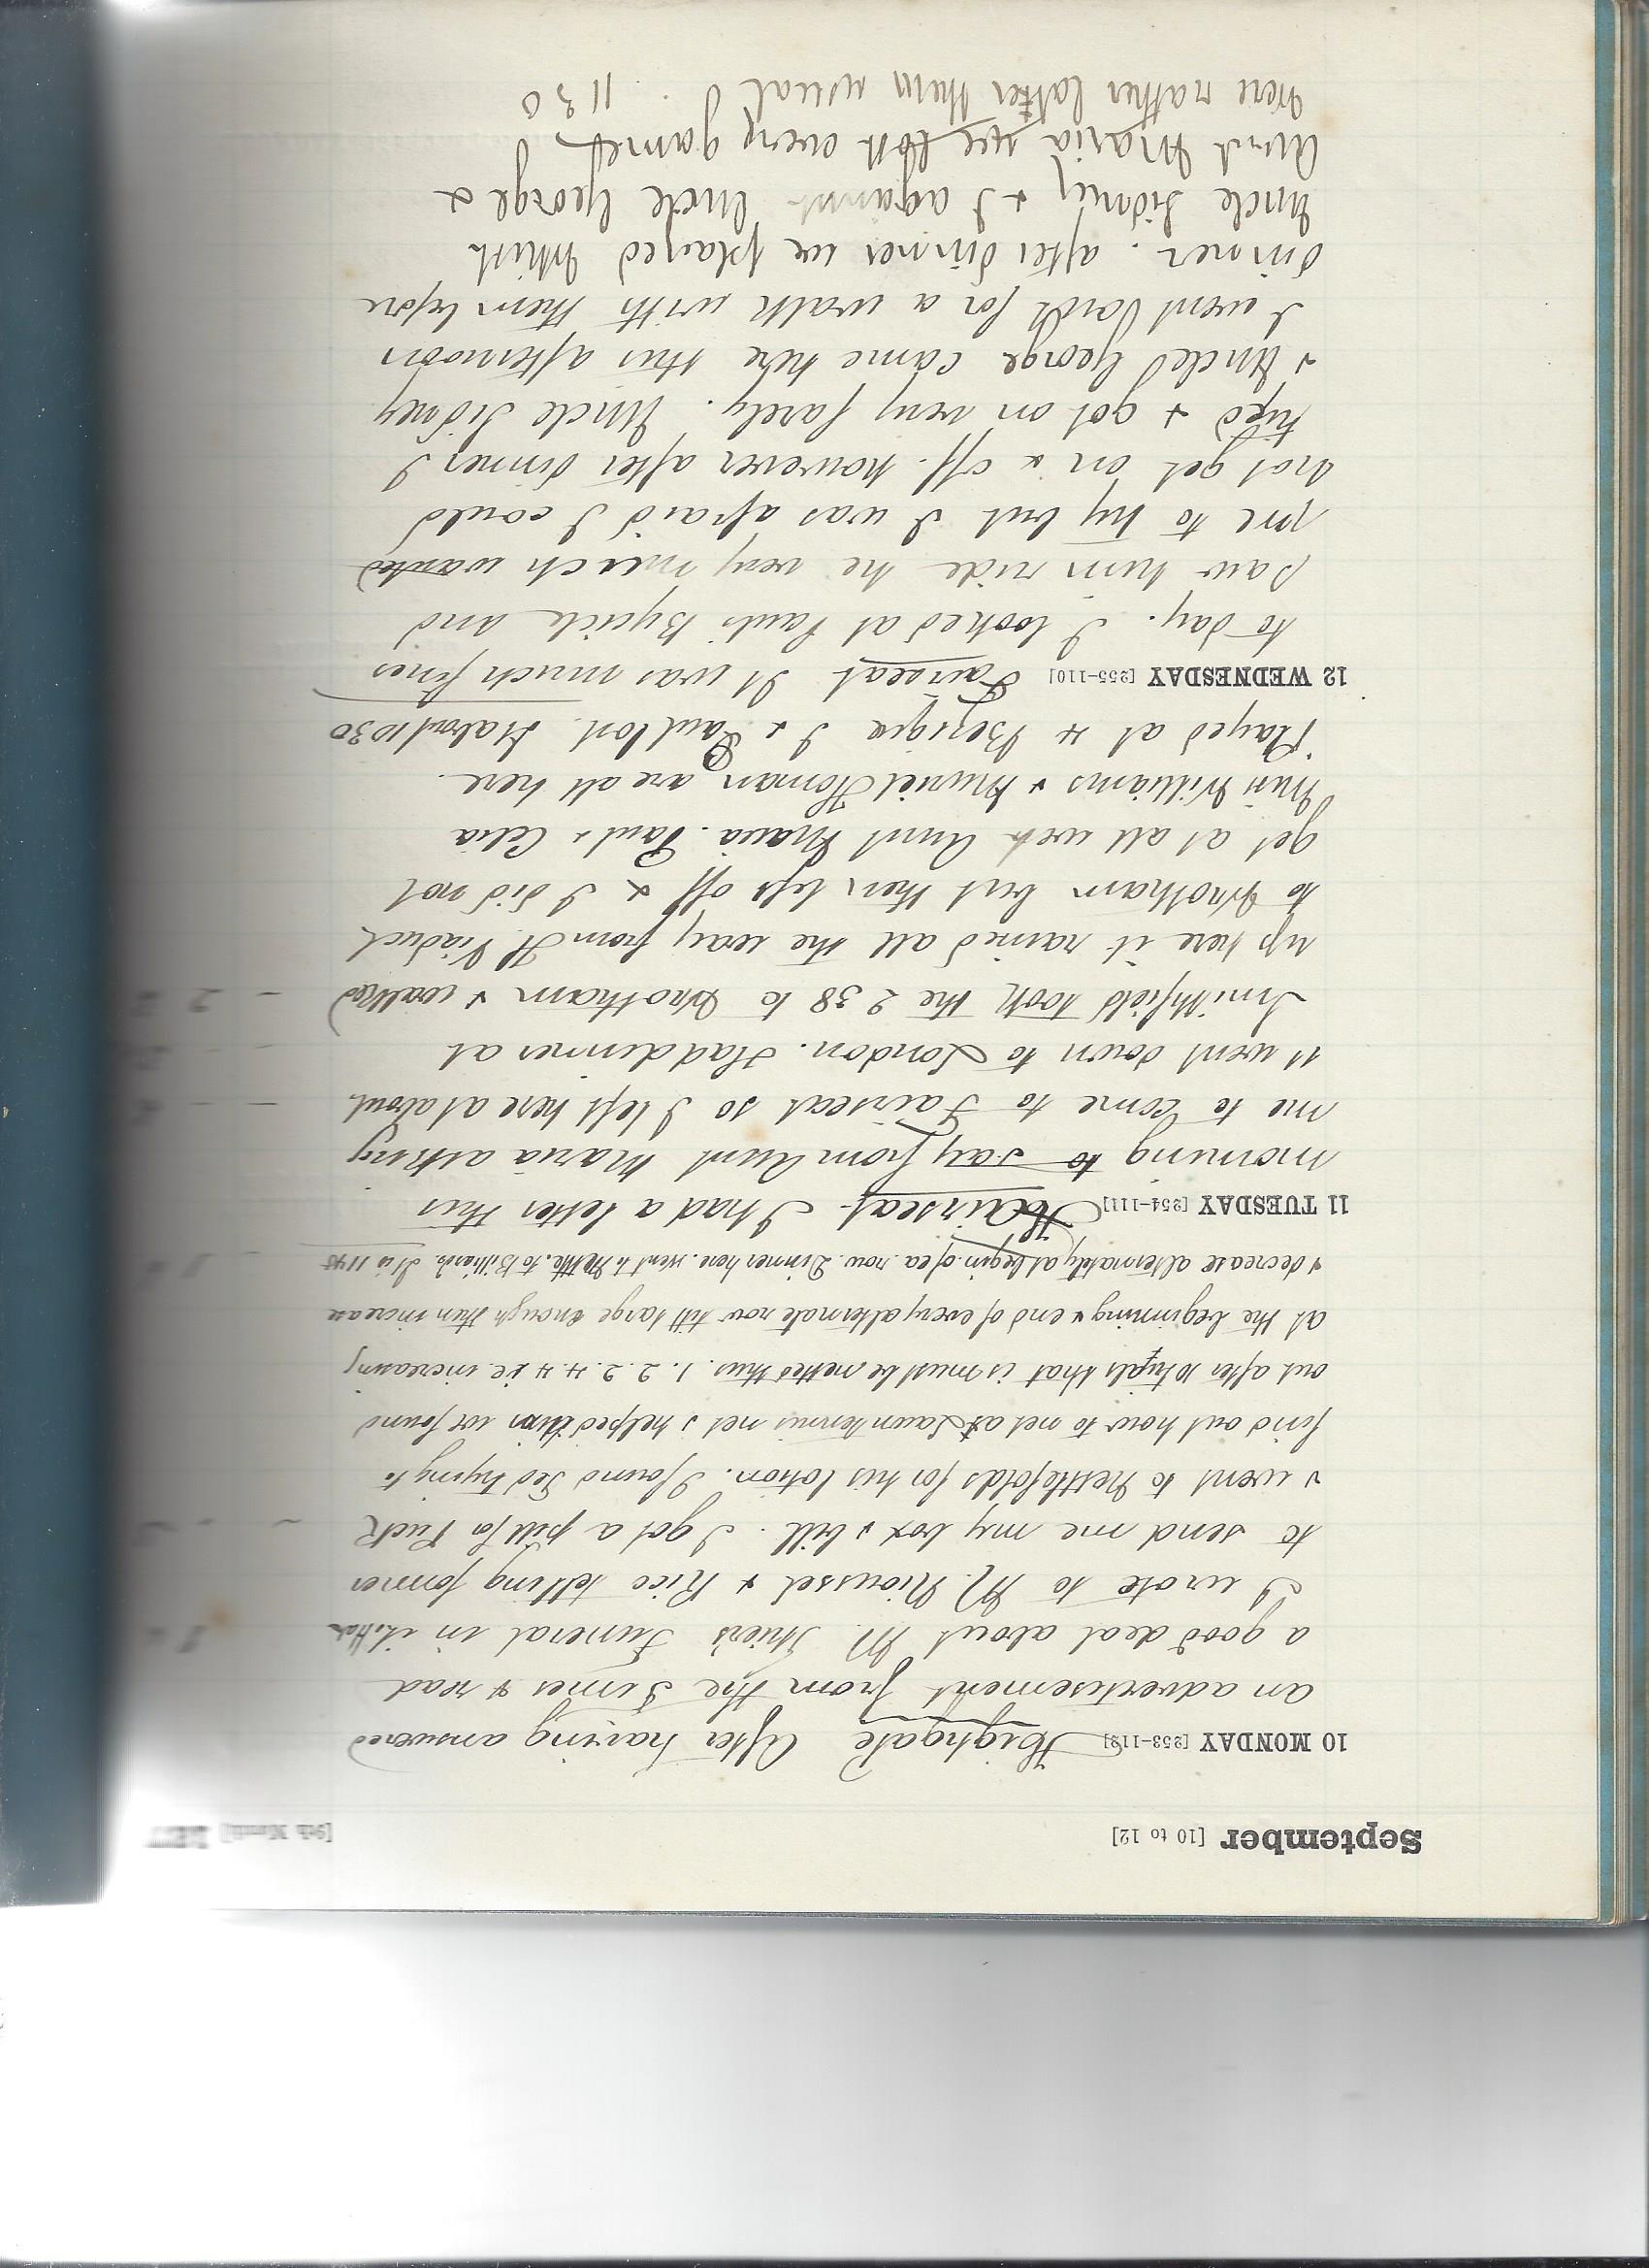 September [10 to 12] [9th Month] 1877
10 MONDAY [253-112] Highgate After having answered
an advertisement from the Times & read
a good deal about M. Thiers Funeral in it.
I wrote to M. Nioussel & Rico telling former
to send me my box & bill. I got a pill for Puck
& went to Nettlefolds for his lotion. I found Ted trying to
find out how to net a Lawn tennis net & helped him we found
out after 10 tryals that is must be netted thus. 1. 2. 2. 4. 4 ie increasing
at the beginning & end of every alternate row till large enough then increase
& decrease alternately at begin. of a row. Dinner here. went to Nettle. to Billiards. It is 1145
11 TUESDAY [254-111] Fairseat. I had a letter this
morning to say from Aunt Maria asking
me to come to Fairseat so I left here at about
11 went down to London. Had dinner at
Smithfield took the 2 38 to Wrotham & walked
up here it rained all the way from H. Viaduct
to Wrotham but then left off & I did not
get at all wet. Aunt Maria. Paul & Celia
Miss Williams & Muriel Homan are all here.
Played at 4 Bezique I & Paul lost. It about 1030
12 WEDNESDAY [255-110] Fairseat It was much finer
to day. I looked at Pauls Bycicle and
saw him ride he very much wanted
me to try but I was afraid I could
not get on & off. however after dinner I
tryed & got on very farely. Uncle Sidney
& Uncle George came here this afternoon
I went back for a walk with them before
dinner. after dinner we played Whist
Uncle Sidney & I against Uncle George &
Aunt Maria we lost every game
were rather latter than usual. 1130